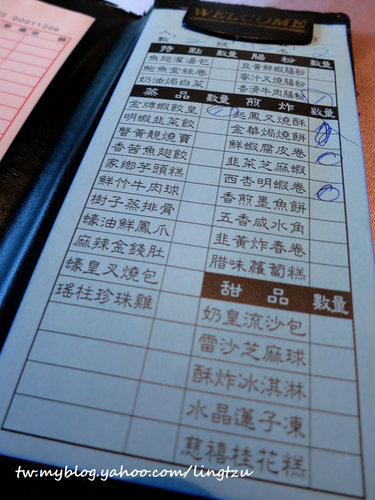 00011206
WELCOME
特點 數量 腸粉 數量
魚翅灌湯包 韭黃鮮蝦腸粉
鮑魚金絲卷 蜜汁叉燒腸粉
奶油焗白菜 香滑牛肉腸粉
蒸品 數量 煎炸 數量
金牌蝦餃皇 起鳳叉燒酥
明蝦韭菜餃 金華焗燒餅
蟹黃靚燒賣 鮮蝦腐皮卷
香茜魚翅餃 韭菜芝麻蝦
家鄉芋頭糕 西杏明蝦卷
鮮竹牛肉球 香煎墨魚餅
樹子蒸排骨 五香咸水角
蠔油鮮鳳爪 韭黃炸春卷
麻辣金錢肚 腊味蘿蔔糕
蠔皇叉燒包 甜品 數量
瑤柱珍珠雞 奶皇流沙包
雷沙芝麻球
酥炸冰淇淋
水晶蓮子凍
慈禧桂花糕
tw.myblog.yahoo.com/lingtzu